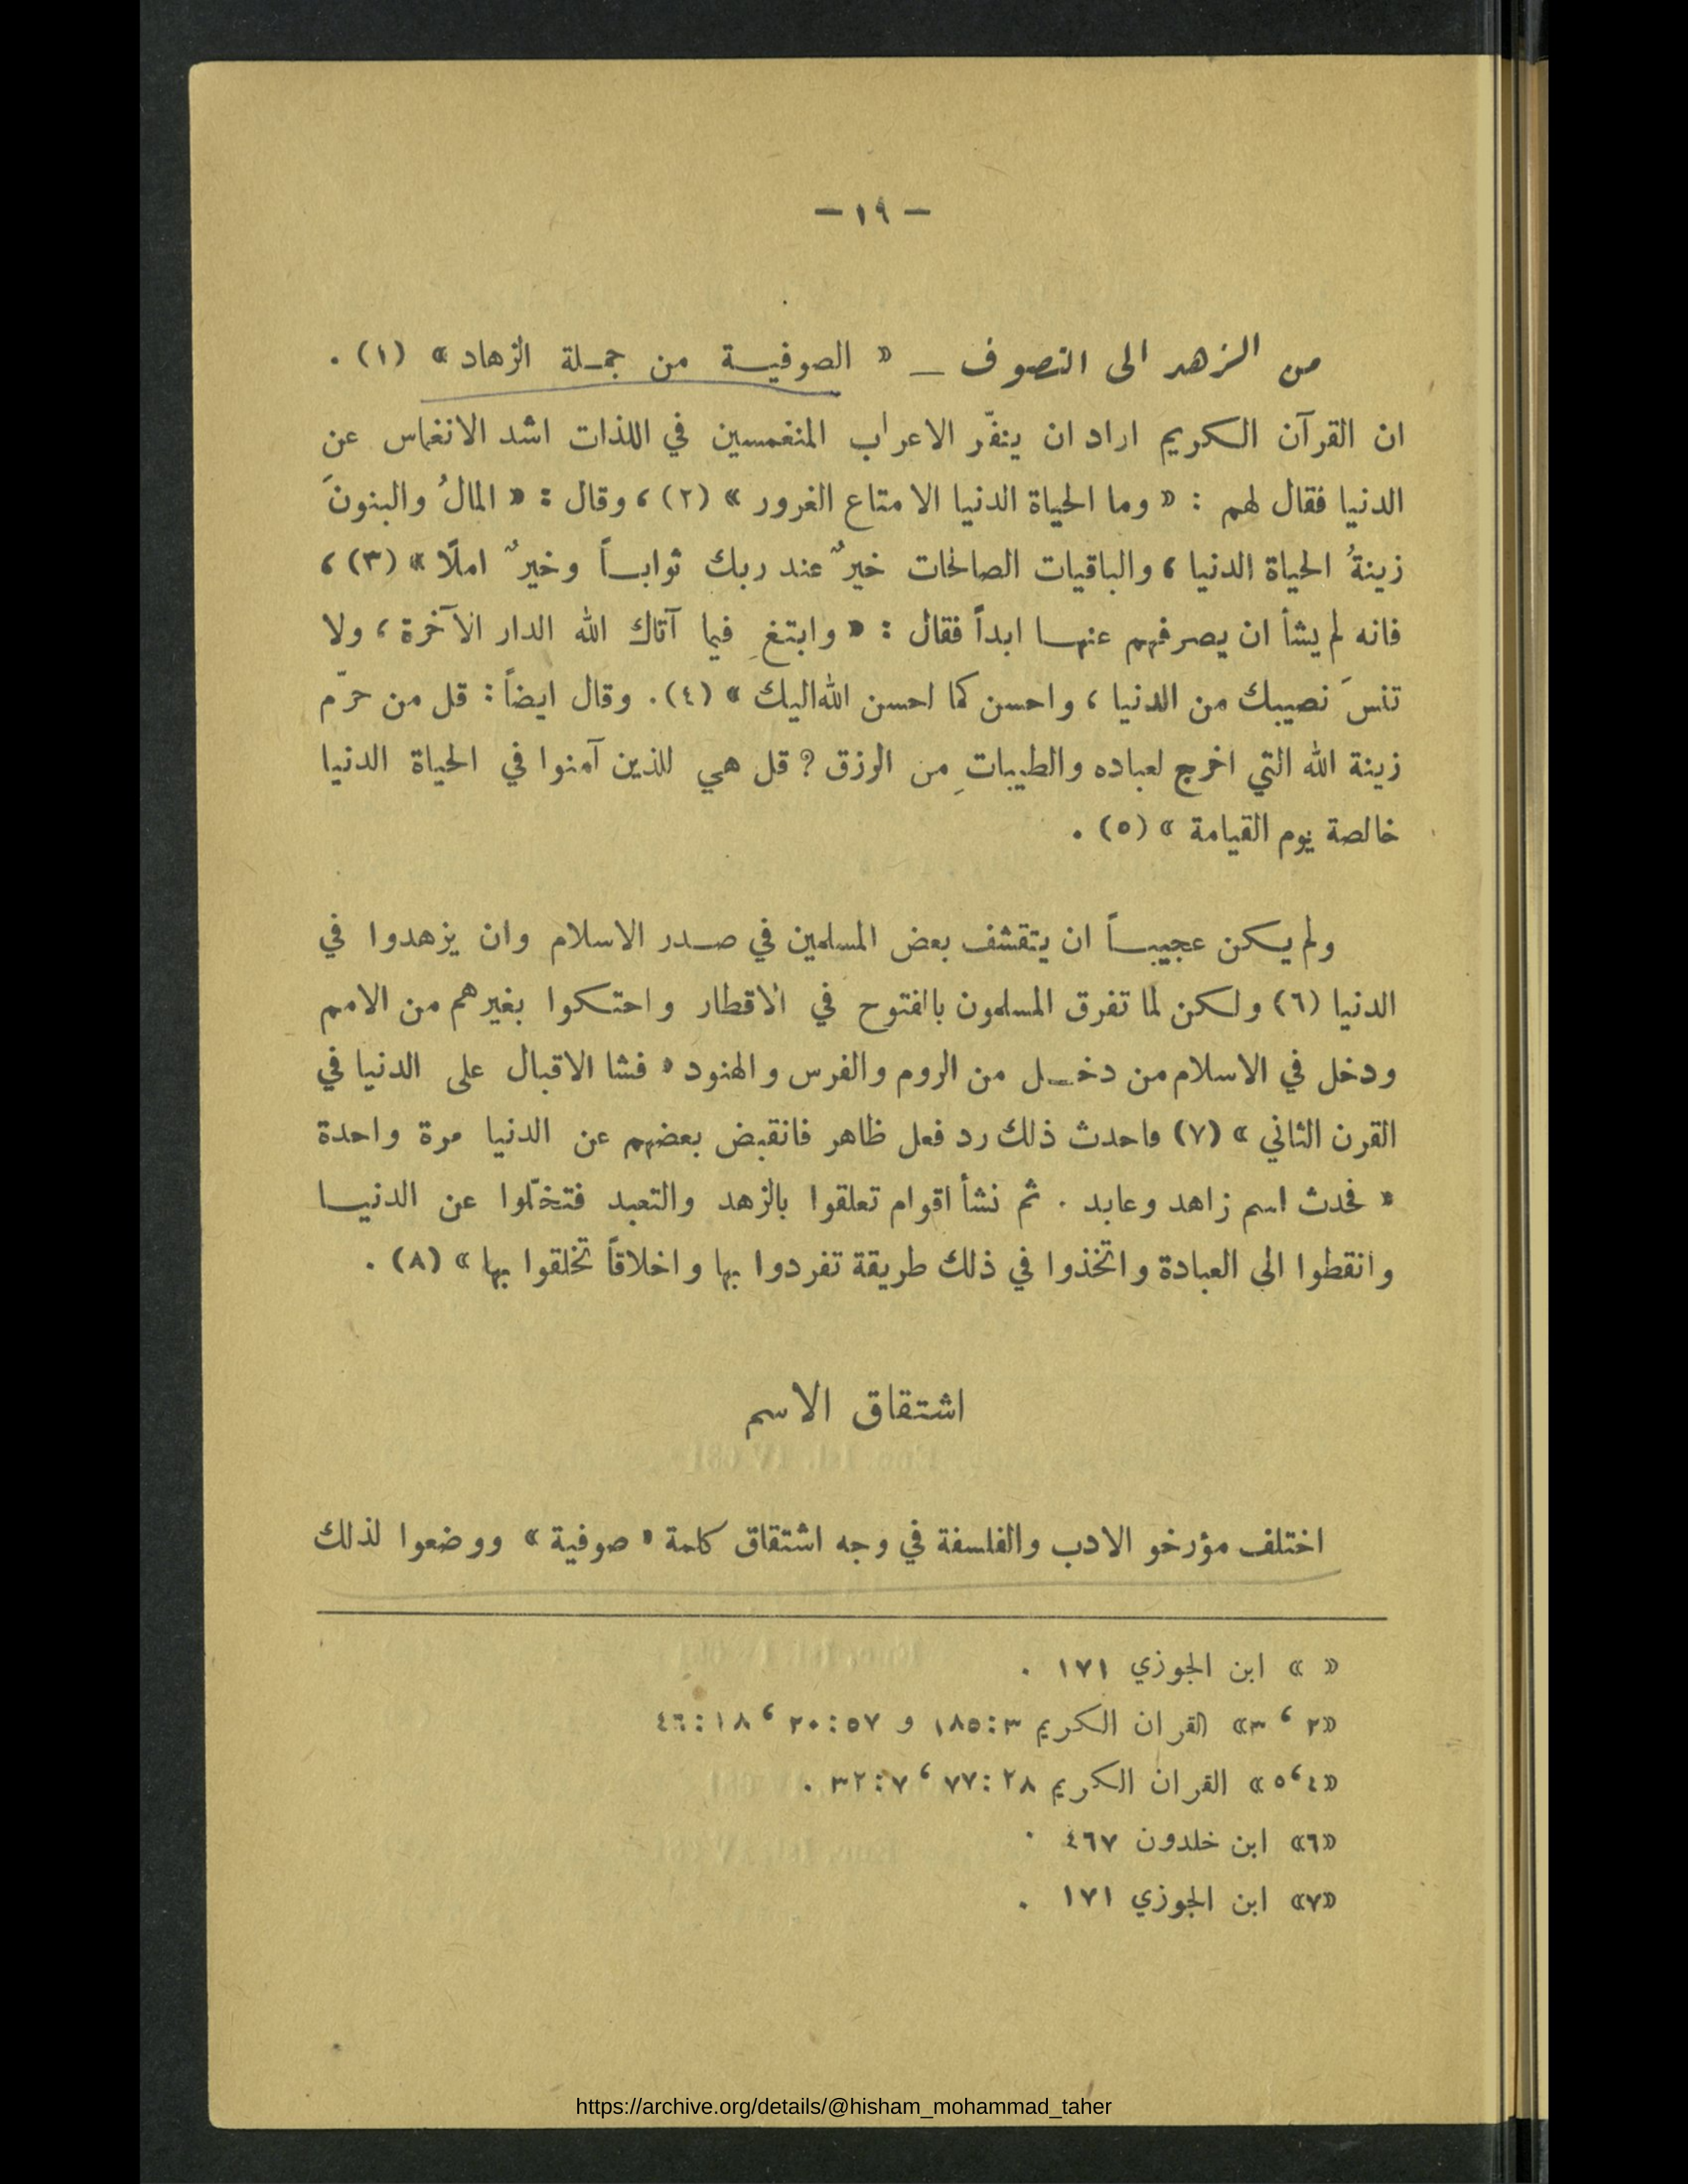 — ١٩ —
من الزهد الى التصوف — « الصوفيـة من جمـلة الزهاد » (١) .
ان القرآن الكريم اراد ان ينفّر الاعراب المنغمسين في اللذات اشد الانغماس عن
الدنيا فقال لهم : « وما الحياة الدنيا الا متاع الغرور » (٢) ، وقال : « المالُ والبنونَ
زينةُ الحياة الدنيا ، والباقيات الصالحات خيرٌ عند ربك ثوابـاً وخيرٌ املًا » (٣) ،
فانه لم يشأ ان يصرفهم عنهـا ابداً فقال : « وابتغِ فيما آتاك الله الدار الآخرة ، ولا
تنسَ نصيبك من الدنيا ، واحسن كما احسن الله اليك » (٤). وقال ايضاً : قل من حرّم
زينة الله التي اخرج لعباده والطيباتِ من الرزق ? قل هي للذين آمنوا في الحياة الدنيا
خالصة يوم القيامة » (٥) .
ولم يـكن عجيبـاً ان يتقشف بعض المسلمين في صـدر الاسلام وان يزهدوا في
الدنيا (٦) ولـكن لما تفرق المسلمون بالفتوح في الاقطار واحتـكوا بغيرهم من الامم
ودخل في الاسلام من دخـل من الروم والفرس والهنود « فشا الاقبال على الدنيا في
القرن الثاني » (٧) فاحدث ذلك رد فعل ظاهر فانقبض بعضهم عن الدنيا مرة واحدة
« فحدث اسم زاهد وعابد . ثم نشأ اقوام تعلقوا بالزهد والتعبد فتخلّوا عن الدنيـا
وانقطوا الى العبادة واتخذوا في ذلك طريقة تفردوا بها واخلاقاً تخلقوا بها » (٨) .
اشتقاق الاسم
اختلف مؤرخو الادب والفلسفة في وجه اشتقاق كلمة « صوفية » ووضعوا لذلك
« » ابن الجوزي ١٧١ .
«٢ ، ٣» القران الكريم ٣:١٨٥ و ٥٧:٢٠ ، ١٨:٤٦
«٤،٥» القران الكريم ٢٨:٧٧ ، ٧:٣٢ .
«٦» ابن خلدون ٤٦٧ .
«٧» ابن الجوزي ١٧١ .
https://archive.org/details/@hisham_mohammad_taher